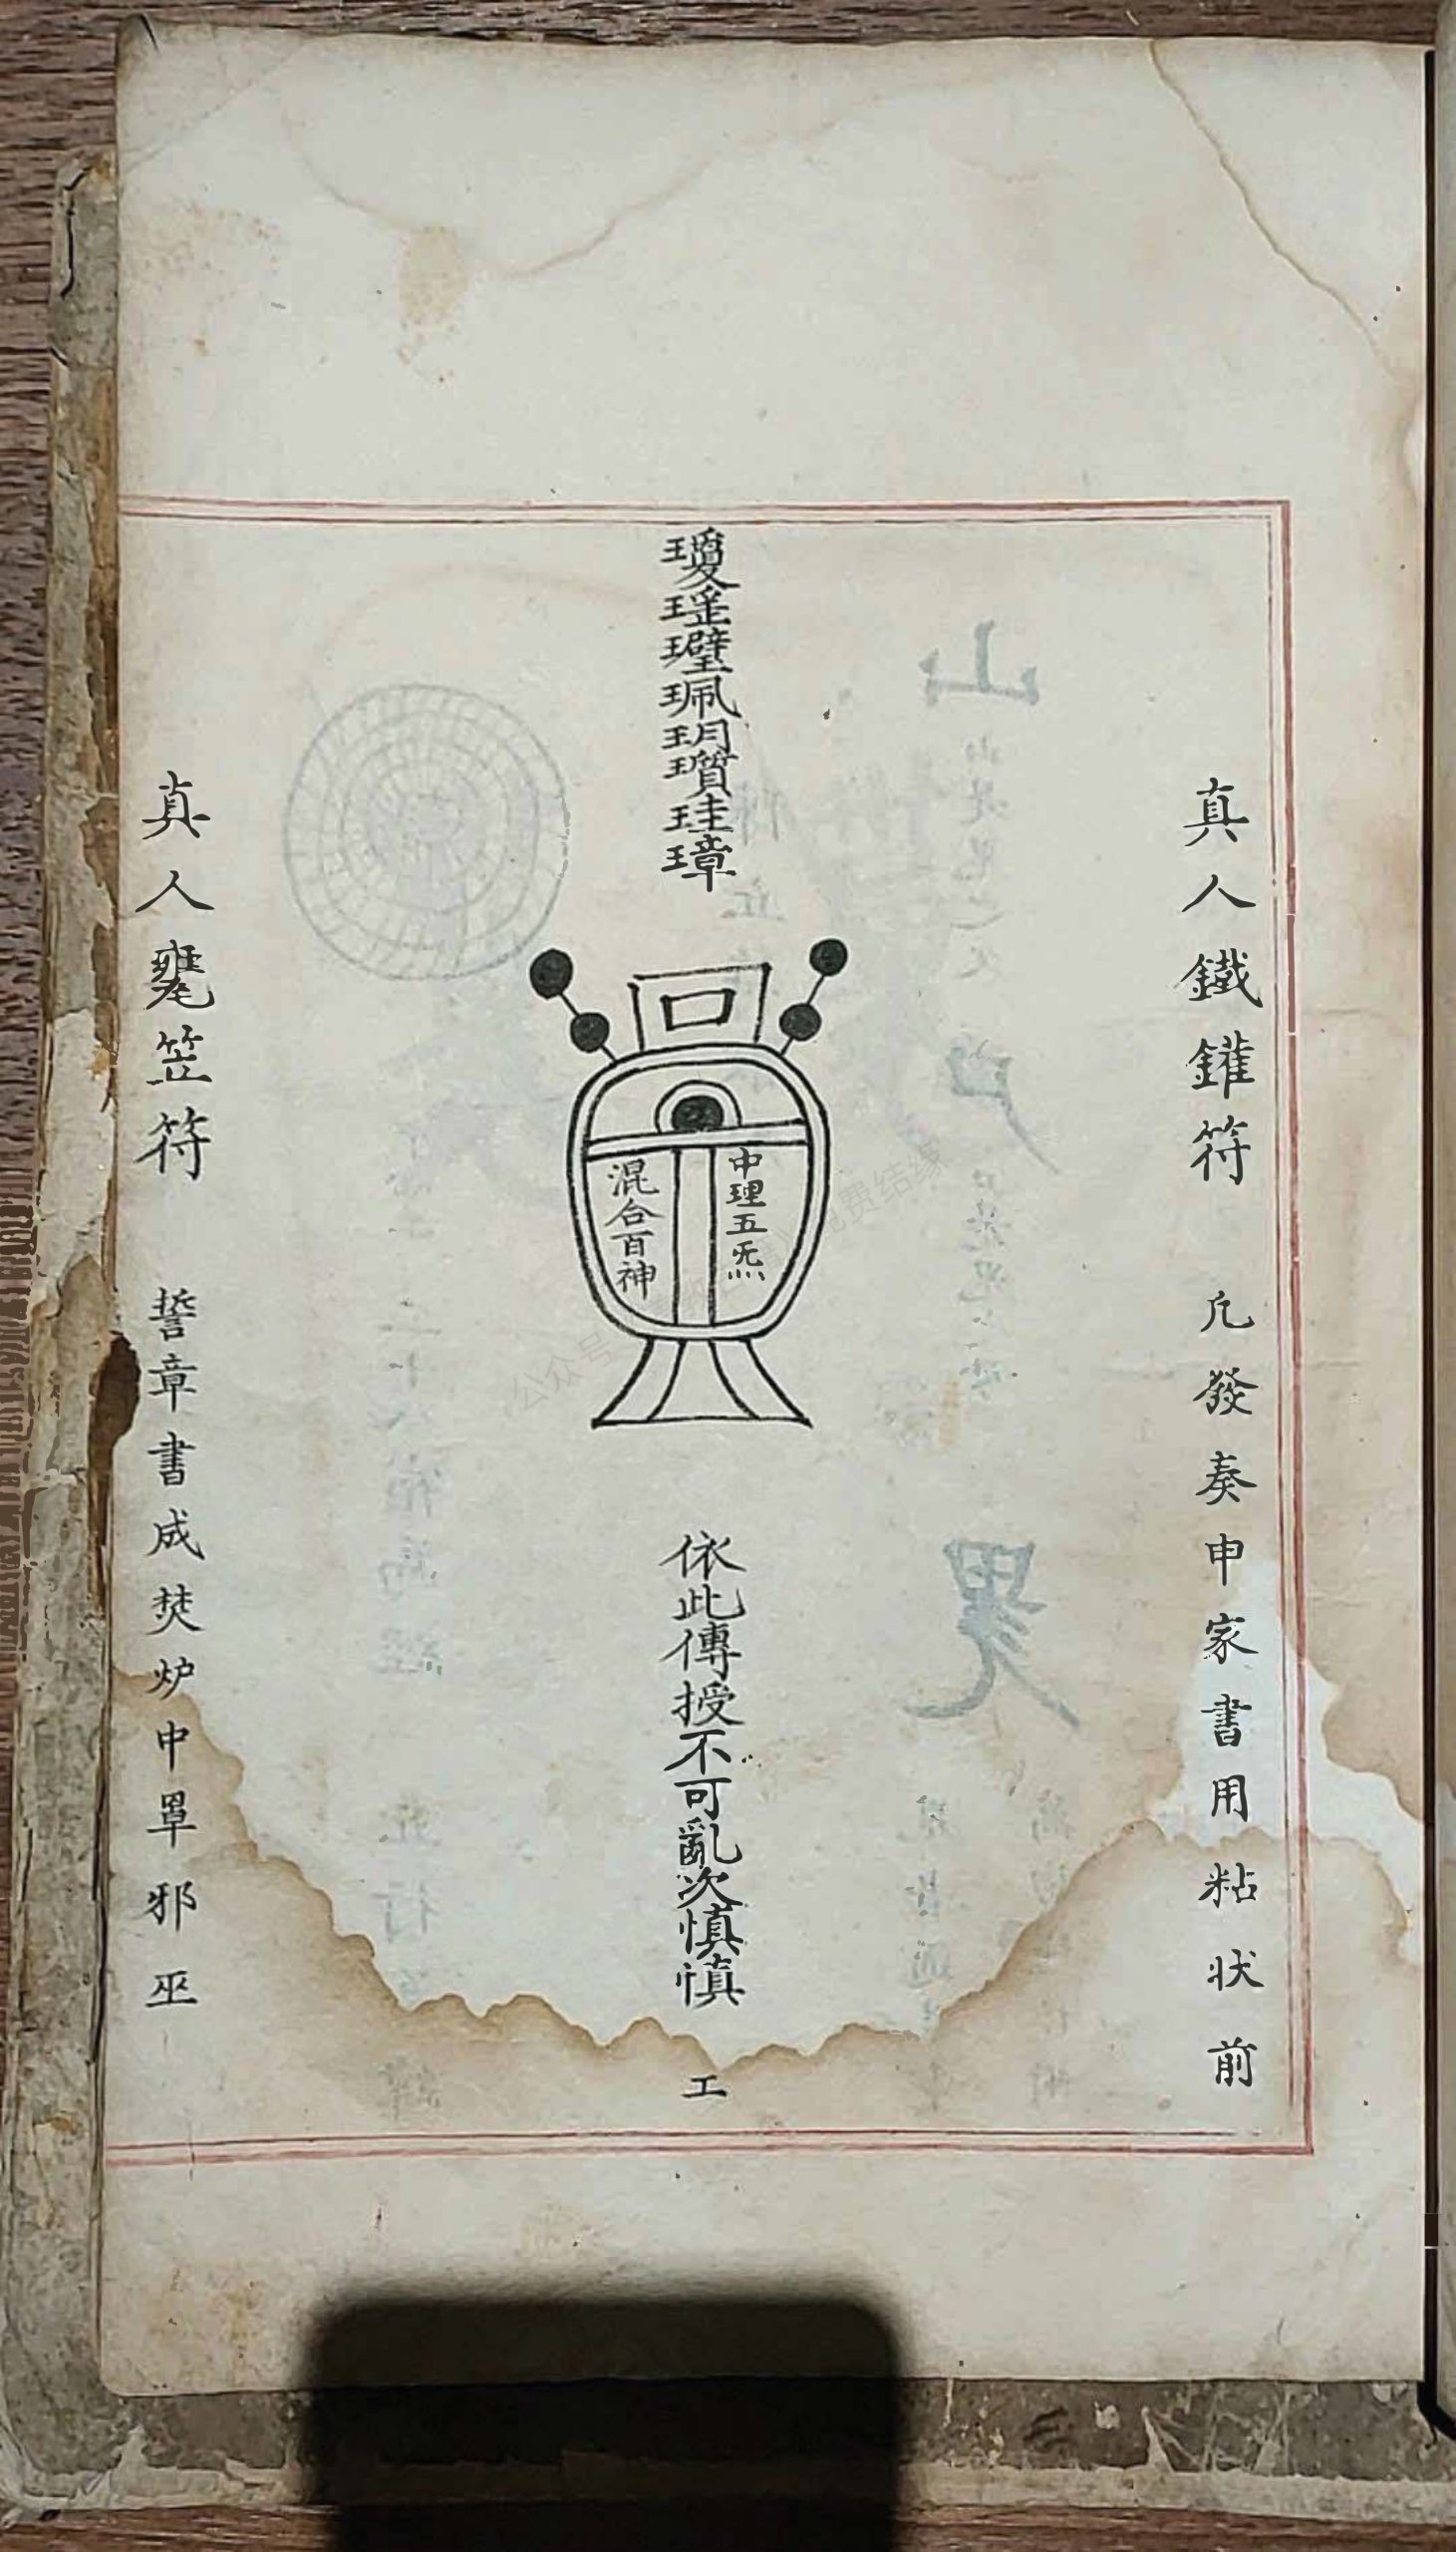 真人鐵鑵符 凢發奏申家書用粘状前
瓊瑤璧珮玥瓆珪璋
中理五炁
混合百神
依此傳授不可亂次慎慎
工
真人笠符 誓章書成焚炉中罩邪巫